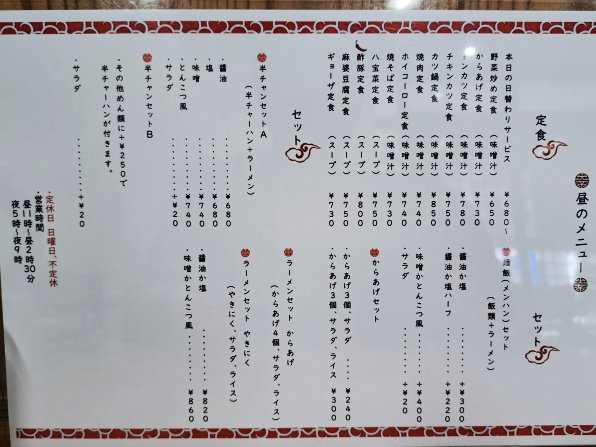 昼のメニュー
定食
本日の日替わりサービス ¥680～
野菜炒め定食 (味噌汁) ¥650
からあげ定食 (味噌汁) ¥730
ンカツ定食 (味噌汁) ¥750
チキンカツ定食 (味噌汁) ¥750
カツ鍋定食 (味噌汁) ¥850
焼肉定食 (味噌汁) ¥740
ホイコーロー定食 (味噌汁) ¥740
焼そば定食 (味噌汁) ¥730
八宝菜定食 (スープ) ¥750
酢豚定食 (スープ) ¥800
麻婆豆腐定食 (スープ) ¥750
ギョーザ定食 (スープ) ¥730
セット
半チャンセットA
(半チャーハン＋ラーメン)
・醤油 ········ ¥680
・塩 ········ ¥680
・味噌 ········ ¥740
・とんこつ風 ······ ¥740
・サラダ ········ +¥20
半チャンセットB
・その他めん類に＋¥250で
半チャーハンが付きます。
・サラダ ········ +¥20
セット
飯(メンハン)セット
(飯類＋ラーメン)
・醤油か塩 ······· +¥300
・醤油か塩ハーフ ···· +¥220
・味噌かとんこつ風 ··· +¥400
・サラダ ········ +¥20
からあげセット
・からあげ3個、サラダ ···· ¥240
・からあげ3個、サラダ、ライス ¥300
ラーメンセット からあげ
(からあげ4個、サラダ、ライス)
ラーメンセット やきにく
(やきにく、サラダ、ライス)
・醤油か塩 ········ ¥820
・味噌かとんこつ風 ······ ¥860
・定休日 日曜日、不定休
・営業時間
昼11時～昼2時30分
夜5時～夜9時